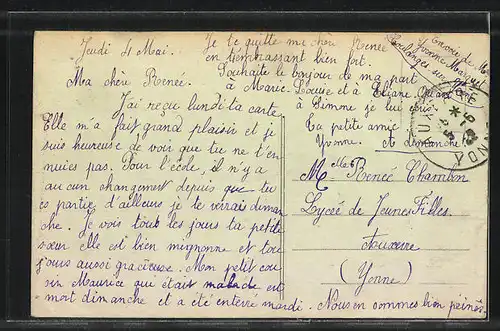 Jeudi 4 Mai.
Ma chère Renée.
J'ai reçu lundi ta carte
Elle m'a fait grand plaisir et je
suis heureuse de voir que tu ne t'en
nuies pas. Pour l'école, il n'y a
aucun changement depuis que tu
es partie, d'ailleurs je te verrais diman
che. Je vois tous les jours ta petite
sœur elle est bien mignonne et tou
jours aussi gracieuse. Mon petit cou
sin Maurice qui était malade est
mort dimanche et a été enterré mardi. Nous en sommes bien peinés.
Je te quitte ma chère Renée
en t'embrassant bien fort.
Souhaite le bonjour de ma part
à Marie-Louise et à
à Simone je lui
Ta petite amie
Yvonne. et dimanche
Envoi de M
Yvonne
Coulanges sur
Mlle Renée Chambon
Lycée de Jeunes Filles.
Auxerre
(Yonne)